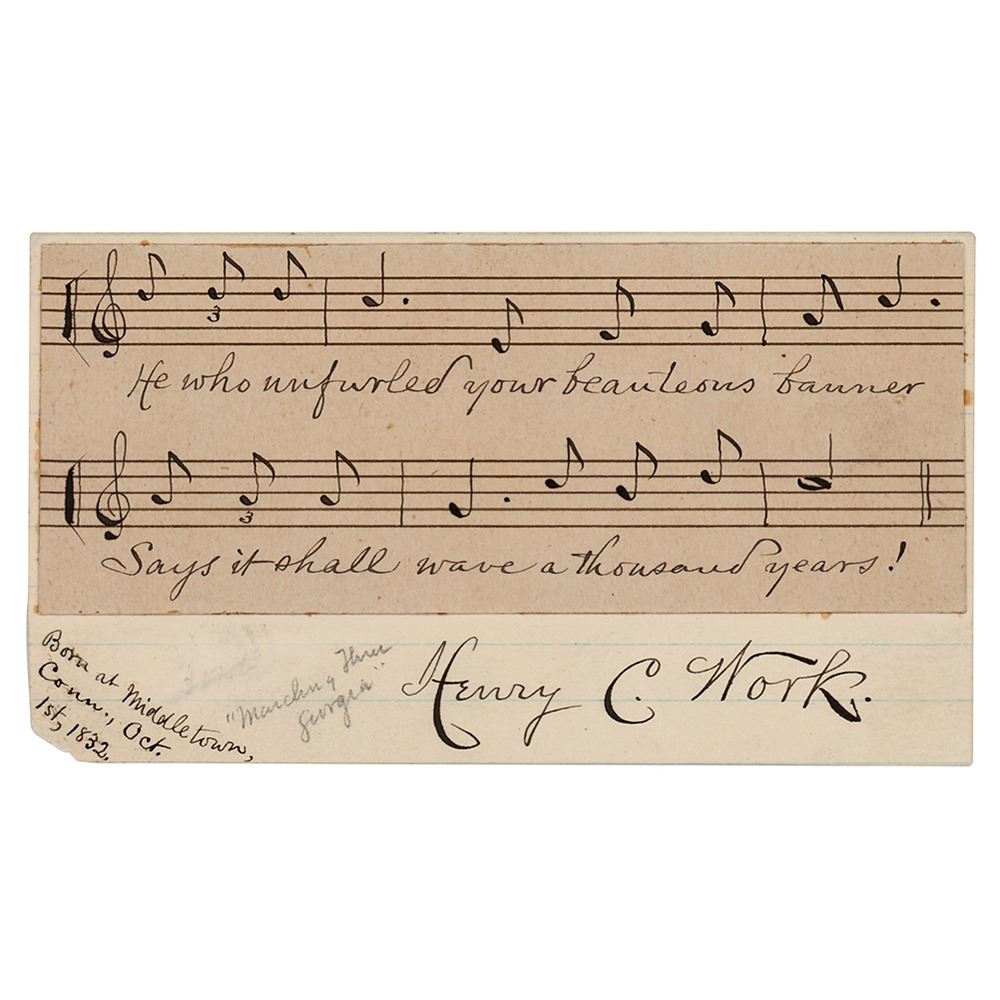 3
He who unfurled your beauteous banner
3
Says it shall wave a thousand years!
Born at Middletown,
Conn., Oct.
1st, 1832.
"Marching Thru
Georgia"
Henry C. Work.